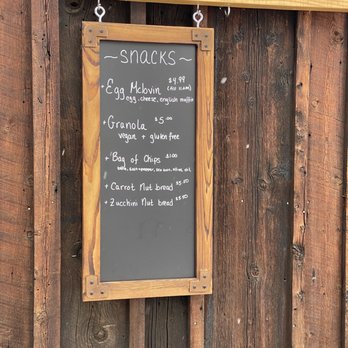 ~SNACKS~
• Egg Mclovin $4.99
egg, cheese, english muffin
• Granola $5.00
vegan + gluten free
• Bag of Chips $1.00
• Carrot Nut bread $5.50
• Zucchini Nut bread $5.50